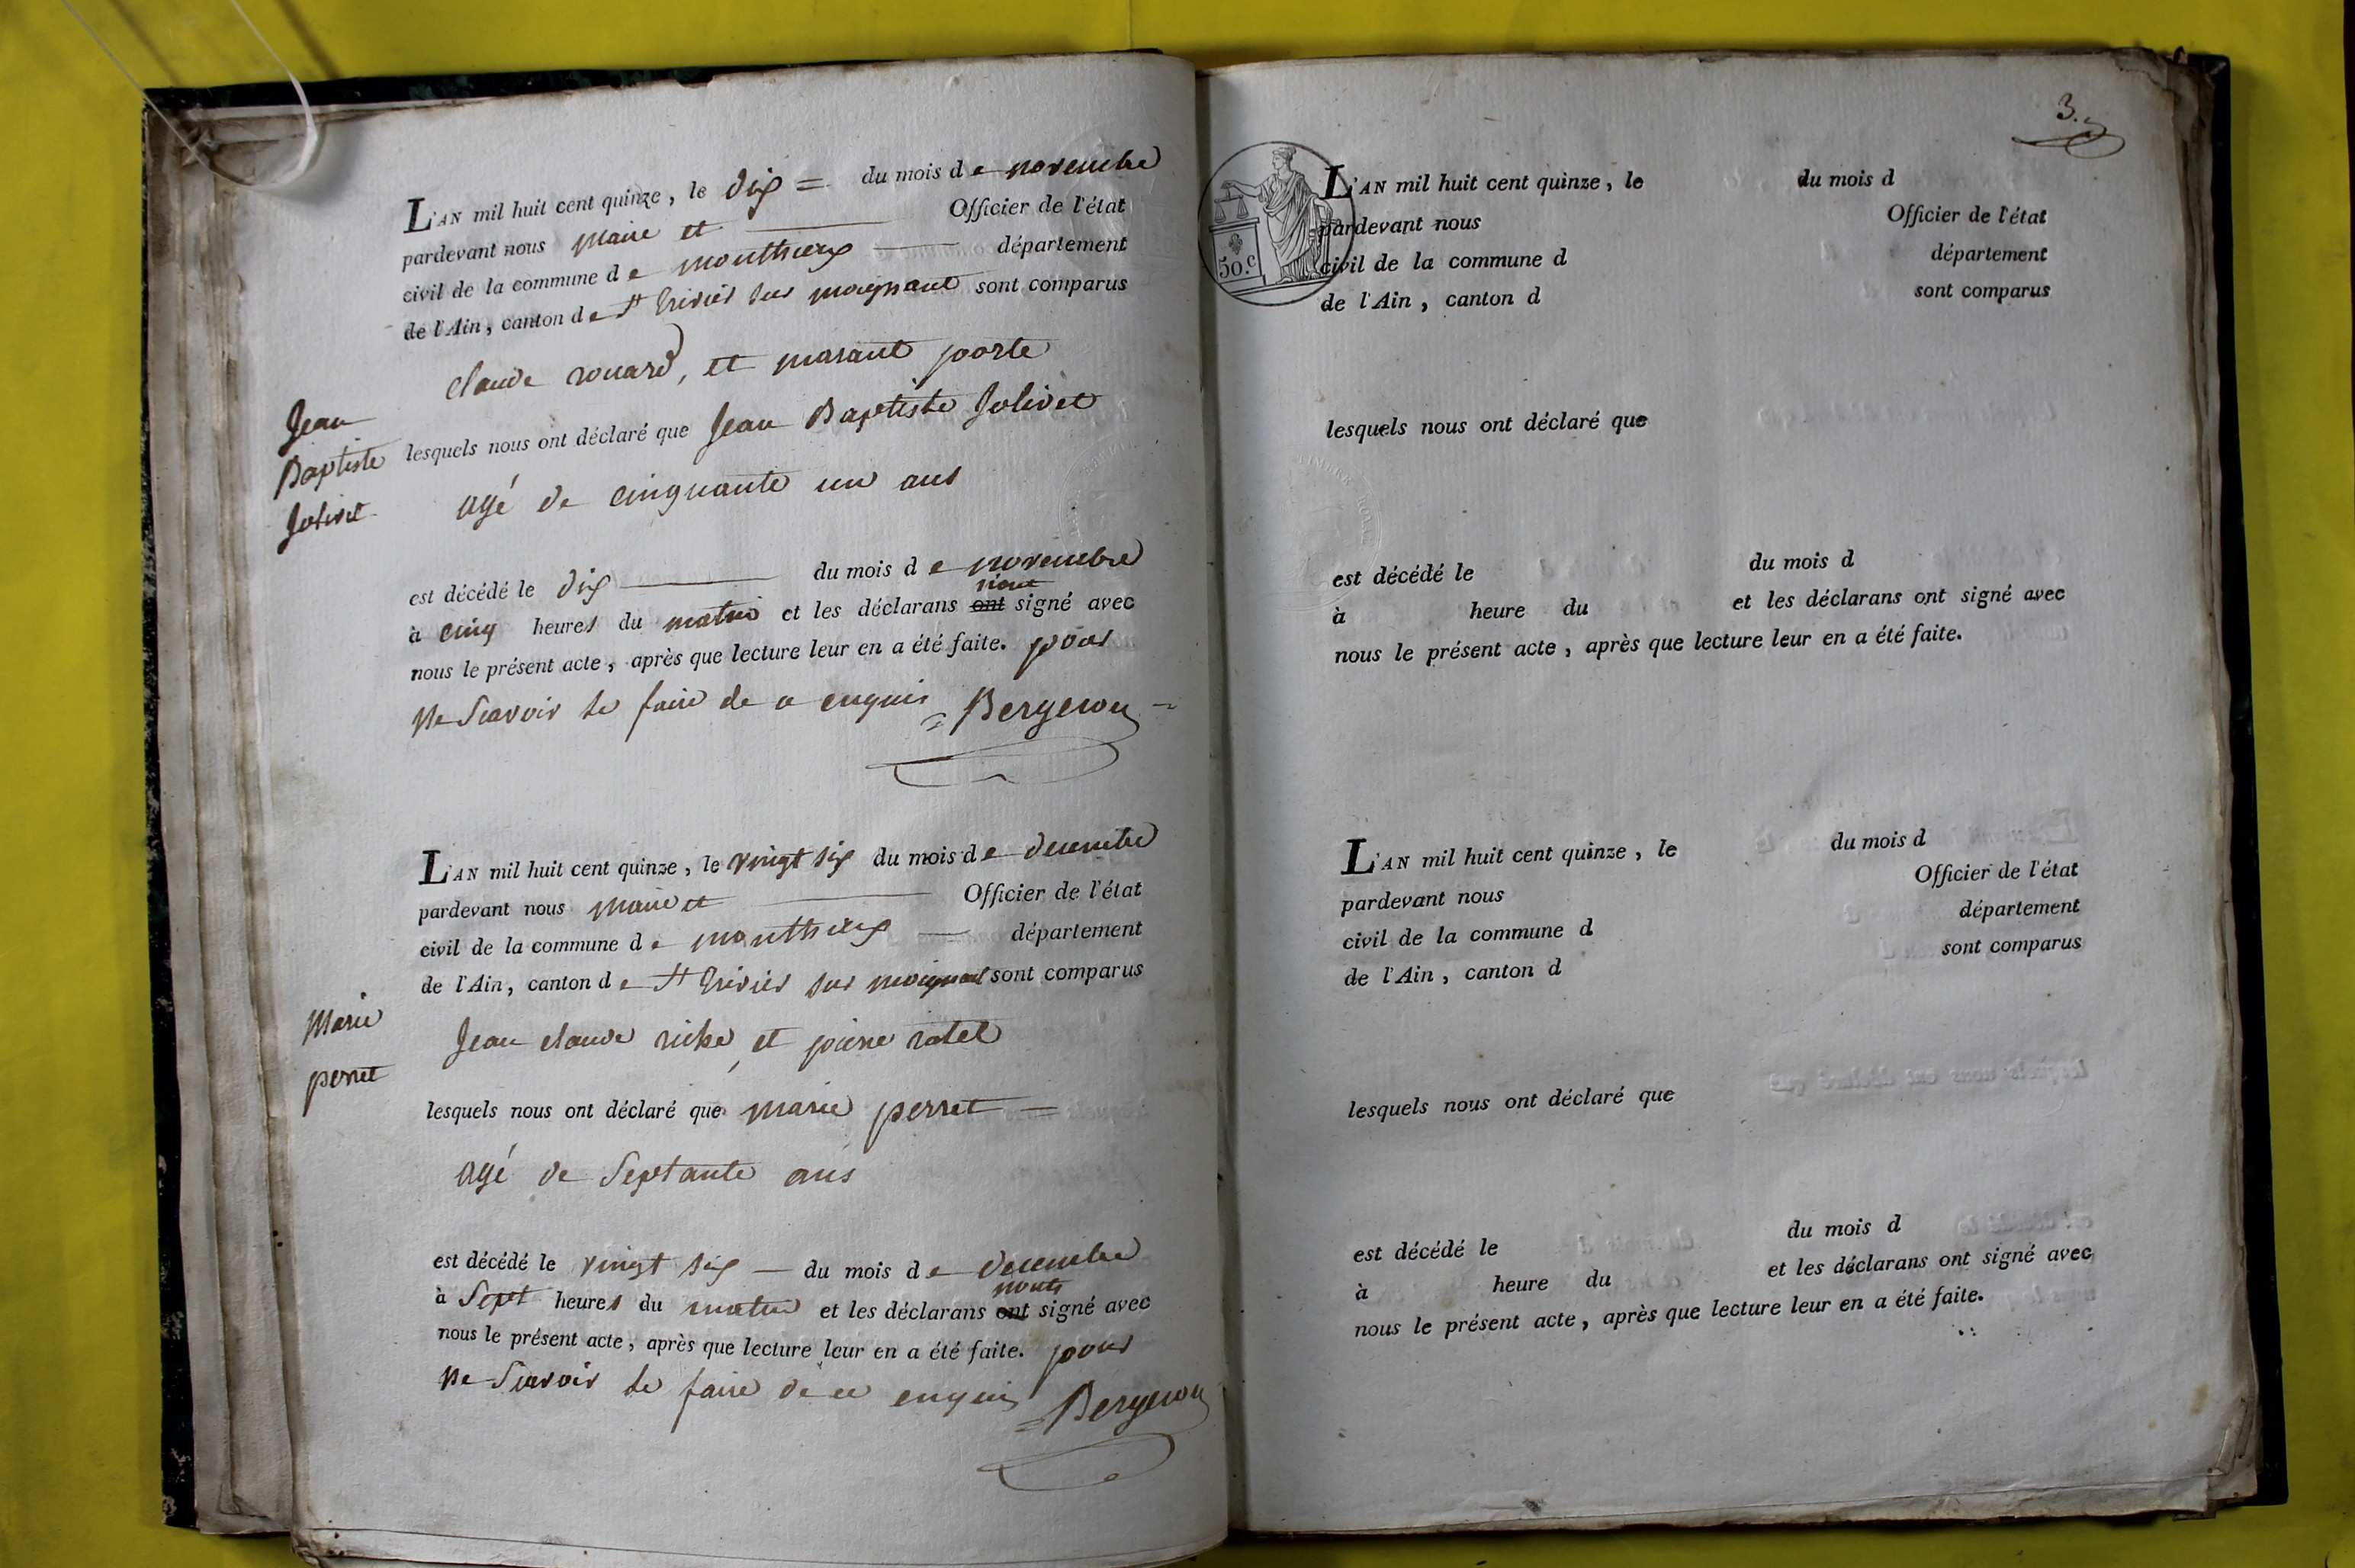 L'AN mil huit cent quinze, le dix = du mois de novembre
pardevant nous maire et Officier de l'état
civil de la commune de monthieux département
de l'Ain, canton de St trivier sur moignant sont comparus
claude rouard, et marant porte
Jean
Baptiste
Jolivet
lesquels nous ont déclaré que Jean Baptiste Jolivet
agé de cinquante un ans
est décédé le dix du mois de novembre
n'ont
à cinq heures du matin et les déclarans ont signé avec
nous le présent acte, après que lecture leur en a été faite. pour
ne Scavoir le faire de a enquis = Bergeron
L'AN mil huit cent quinze, le vingt six du mois de decembre
pardevant nous maire et Officier de l'état
civil de la commune de monthieux département
de l'Ain, canton de St trivier sur moignant sont comparus
Marie
perret
Jean claude riche, et pierre ratel
lesquels nous ont déclaré que marie perret =
agé de Septante ans
est décédé le vingt six du mois de decembre
n'ont
à Sept heures du matin et les déclarans ont signé avec
nous le présent acte, après que lecture leur en a été faite. pour
ne Scavoir le faire de ce enquis = Bergeron
3.
50.c
L'AN mil huit cent quinze, le du mois d
pardevant nous Officier de l'état
civil de la commune d département
de l'Ain, canton d sont comparus
lesquels nous ont déclaré que
est décédé le du mois d
à heure du et les déclarans ont signé avec
nous le présent acte, après que lecture leur en a été faite.
L'AN mil huit cent quinze, le du mois d
pardevant nous Officier de l'état
civil de la commune d département
de l'Ain, canton d sont comparus
lesquels nous ont déclaré que
est décédé le du mois d
à heure du et les déclarans ont signé avec
nous le présent acte, après que lecture leur en a été faite.